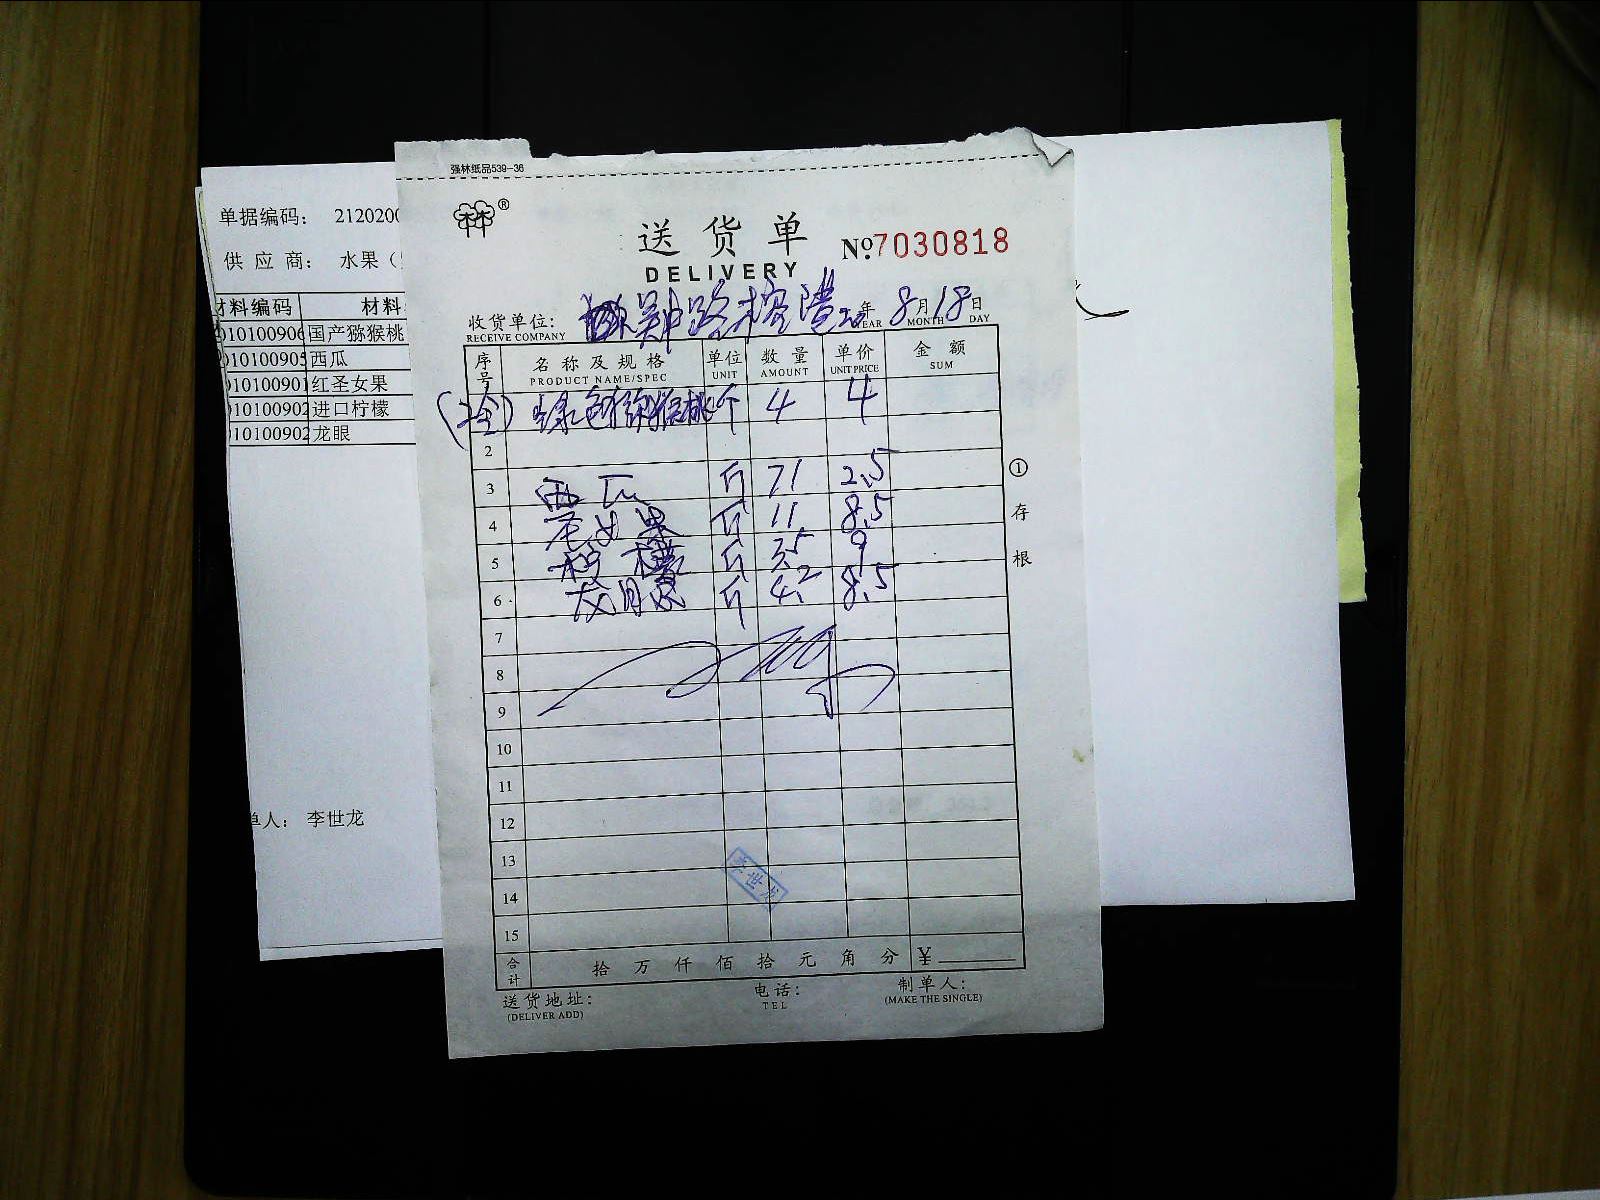 强林纸品539-36
单据编码： 2120200
供 应 商： 水果（
材料编码 材料
010100906 国产猕猴桃
010100905 西瓜
010100901 红圣女果
010100902 进口柠檬
010100902 龙眼
单人： 李世龙
®
送货单
DELIVERY
№7030818
收货单位：
RECEIVE COMPANY
20年 8月18日
YEAR MONTH DAY
序号 名称及规格 单位 数量 单价 金额
PRODUCT NAME/SPEC UNIT AMOUNT UNIT PRICE SUM
绿色猕猴桃 个 4 4
2
3 西瓜 斤 71 2.5
4 圣女果 斤 11 8.5
5 柠檬 斤 3.5 9
6 龙眼 斤 4.2 8.5
7
8
9
10
11
12
13
14
15
李世龙
合计 拾万仟佰拾元角分 ¥
① 存根
送货地址： 电话： 制单人：
(DELIVER ADD) TEL (MAKE THE SINGLE)